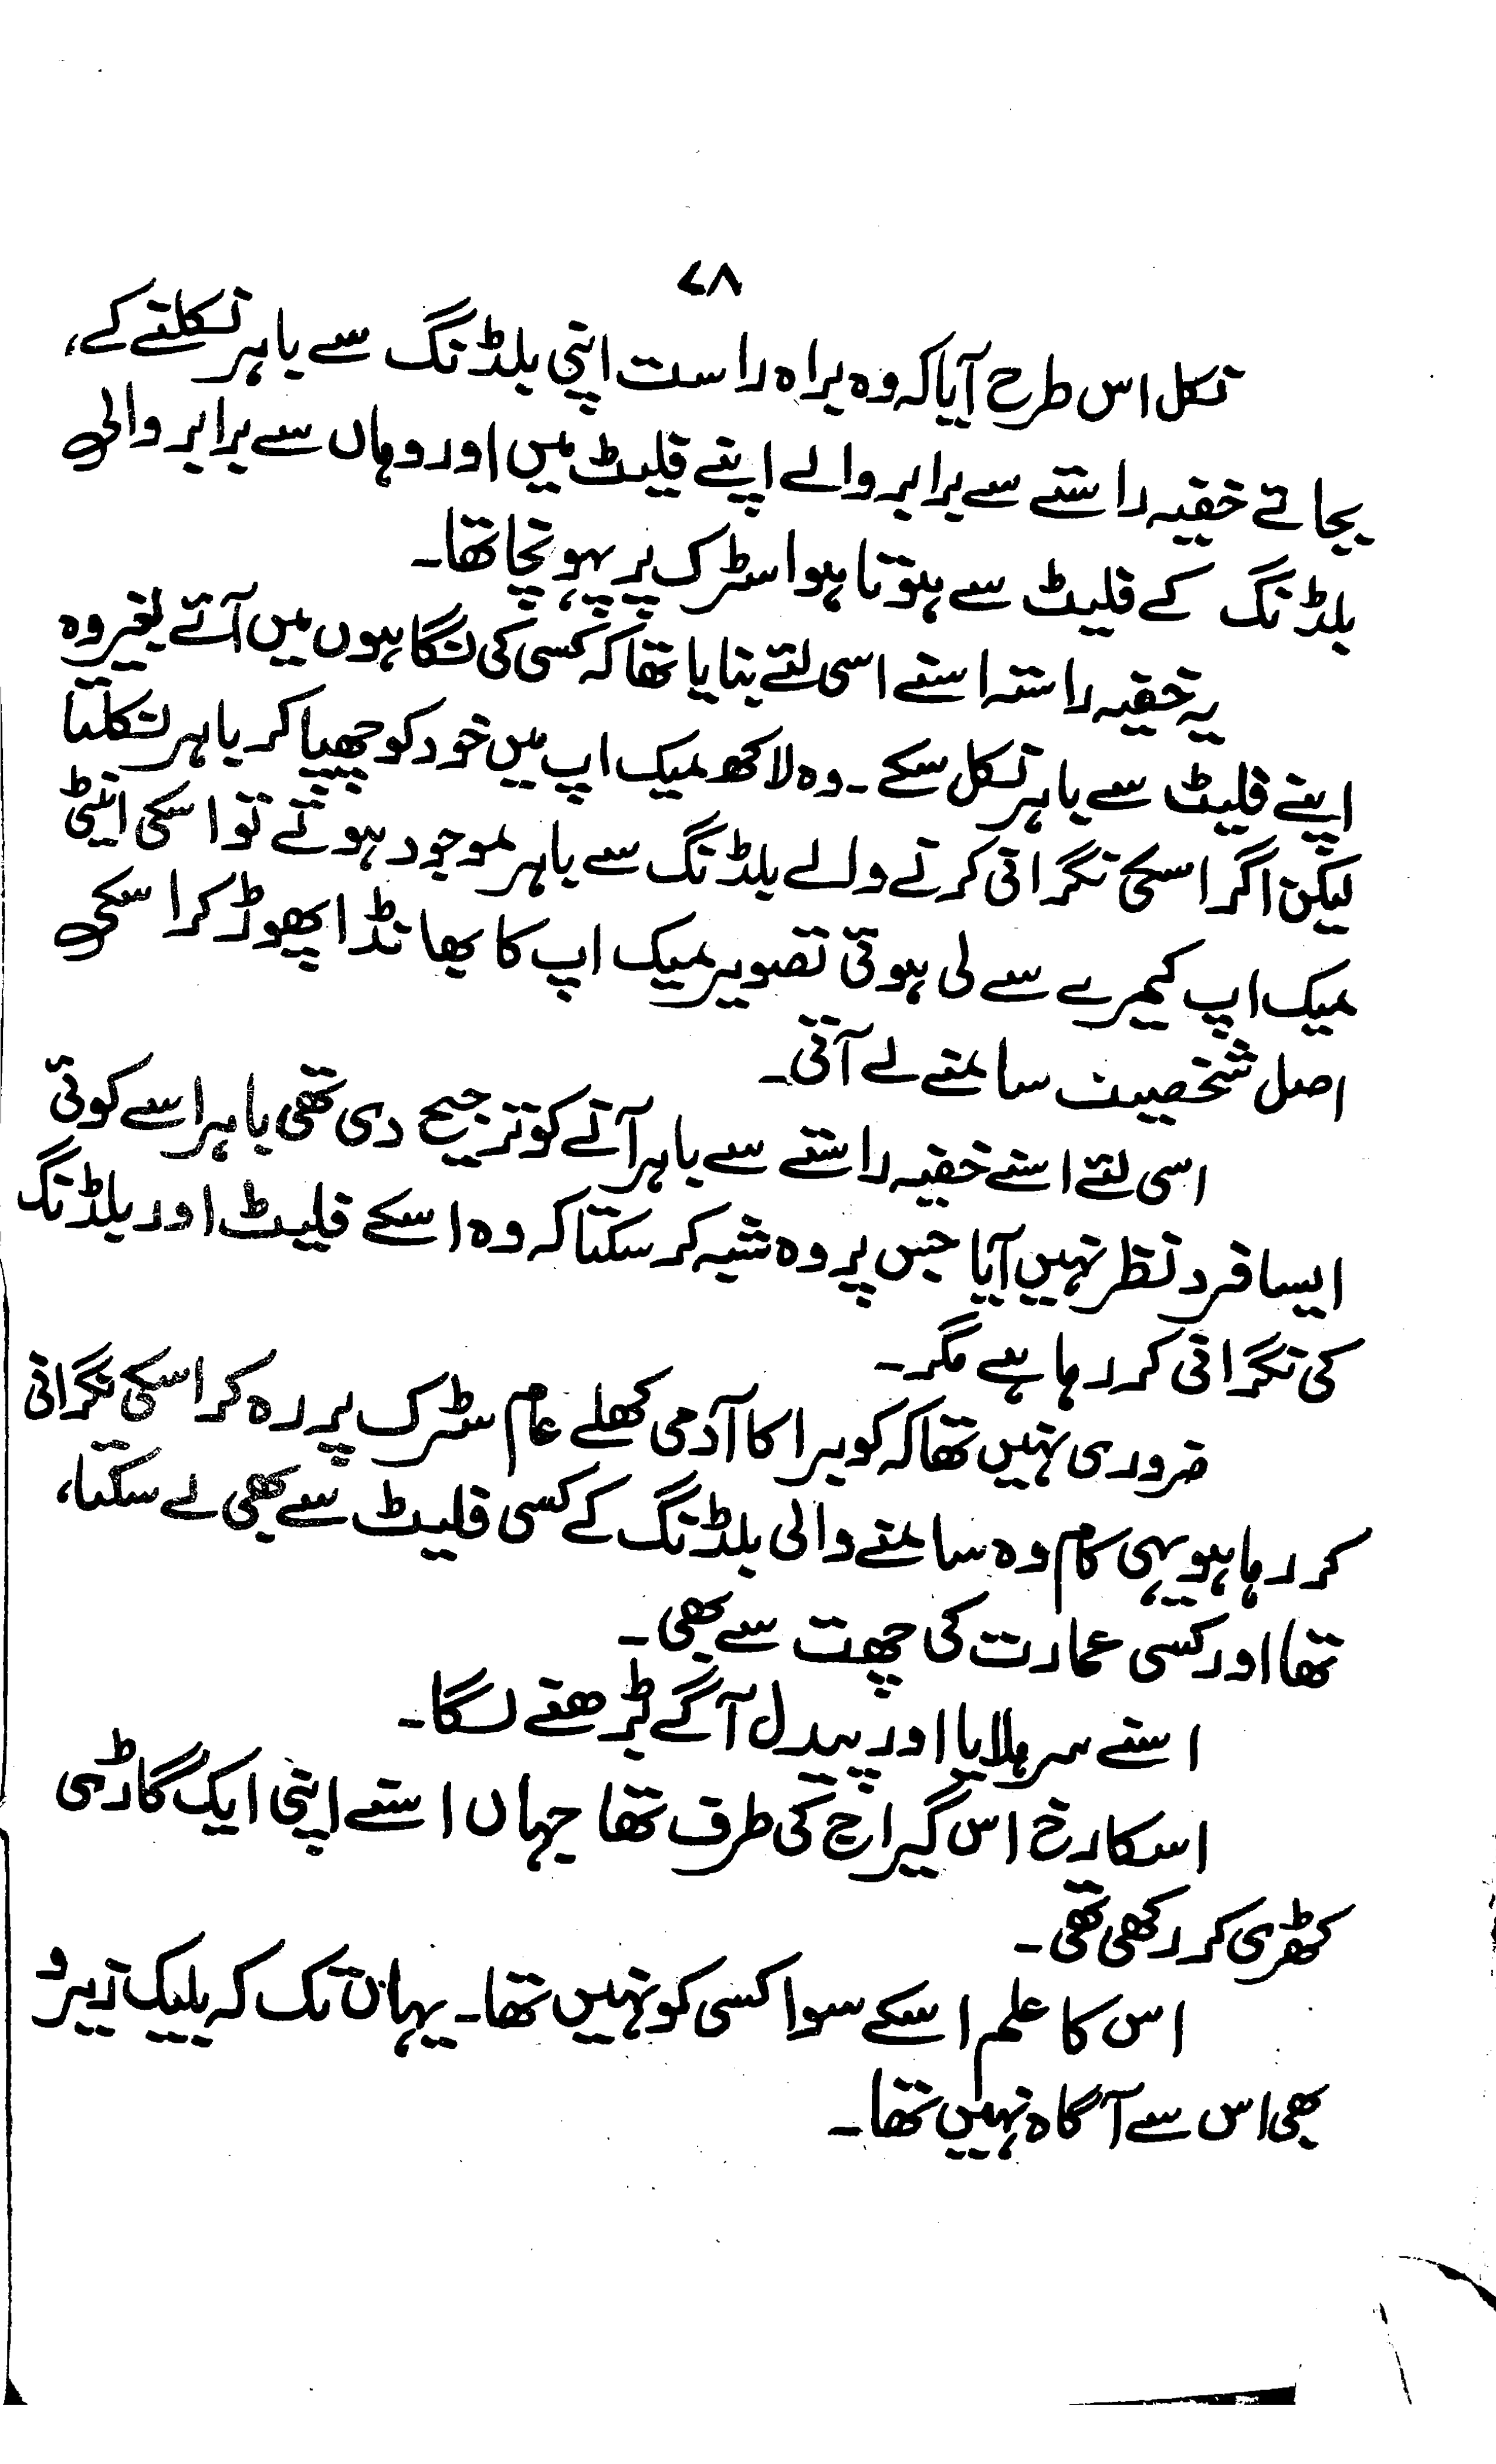 ۷۸
نکل اس طرح آیا کہ وہ براہ راست اپنی بلڈنگ سے باہر نکلنے کے،
بجائے خفیہ راستے سے برابر والے اپنے فلیٹ میں اور وہاں سے برابر والی
بلڈنگ کے فلیٹ سے ہوتا ہوا سڑک پر پہونچا تھا۔
یہ خفیہ راستہ اسنے اسی لئے بنایا تھا کہ کسی کی نگاہوں میں آئے بغیر وہ
اپنے فلیٹ سے باہر نکل سکے۔ وہ لاکھ میک اپ میں خود کو چھپا کر باہر نکلتا
لیکن اگر اسکی نگرانی کرنے والے بلڈنگ سے باہر موجود ہوتے تو اسکی اینٹی
میک اپ کیمرے سے لی ہوئی تصویر میک اپ کا بھانڈا پھوڑ کر اسکی
اصل شخصیت سامنے لے آتی۔
اسی لئے اسنے خفیہ راستے سے باہر آنے کو ترجیح دی تھی باہر اسے کوئی
ایسا فرد نظر نہیں آیا جس پر وہ شبہ کر سکتا کہ وہ اسکے فلیٹ اور بلڈنگ
کی نگرانی کر رہا ہے مگر۔
ضروری نہیں تھا کہ کوبرا کا آدمی کھلے عام سڑک پر رہ کر اسکی نگرانی
کر رہا ہو یہی کام وہ سامنے والی بلڈنگ کے کسی فلیٹ سے بھی لے سکتا،
تھا اور کسی عمارت کی چھت سے بھی۔
اسنے سر ہلایا اور پیدل آگے بڑھنے لگا۔
اسکا رخ اس گیراج کی طرف تھا جہاں اسنے اپنی ایک گاڑی
کھڑی کر رکھی تھی۔
اس کا علم اسکے سوا کسی کو نہیں تھا۔ یہاں تک کہ بلیک زیرو
بھی اس سے آگاہ نہیں تھا۔